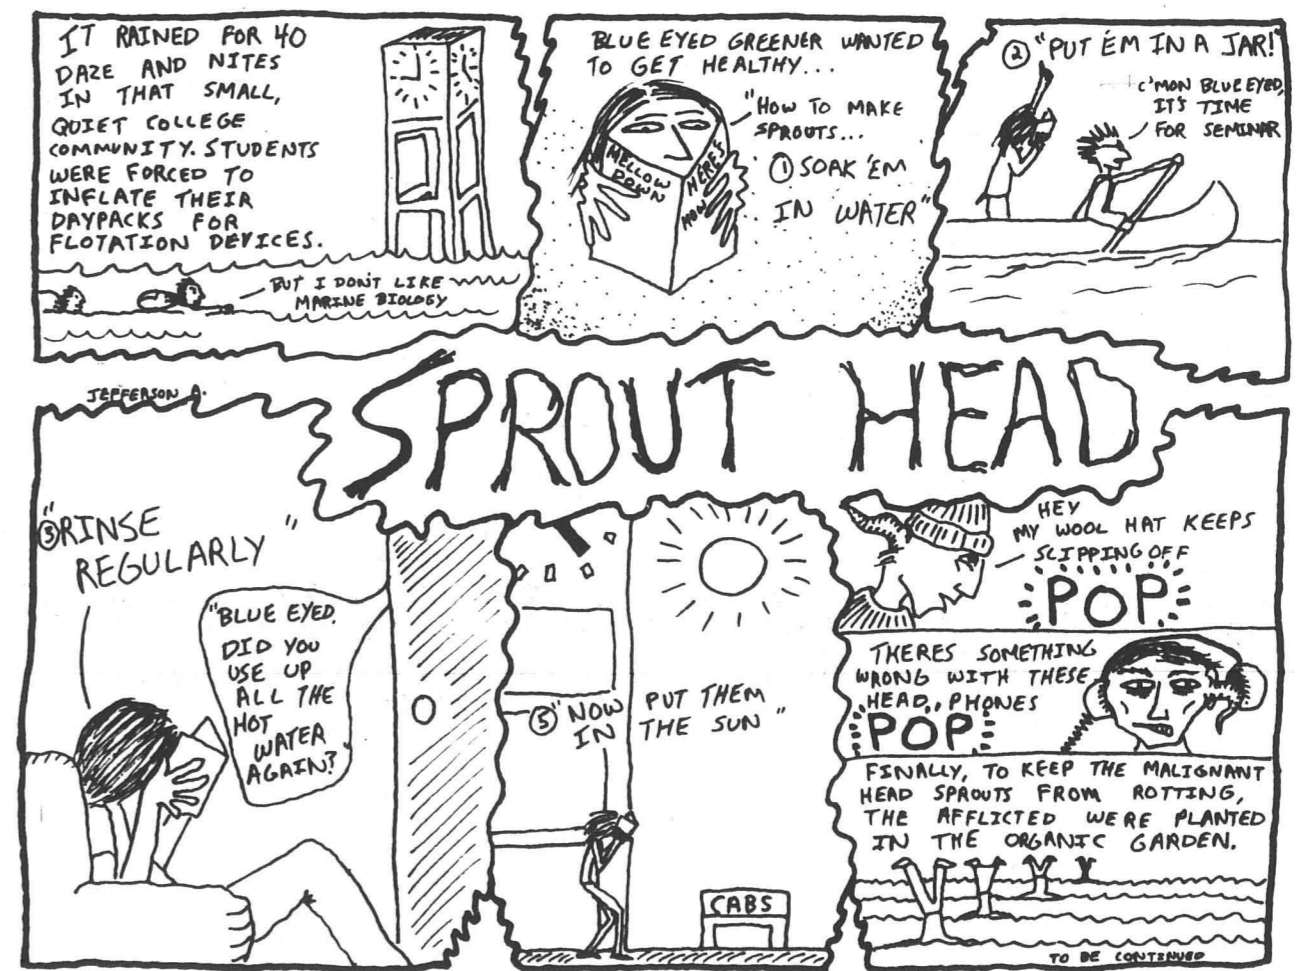 IT RAINED FOR 40
DAZE AND NITES
IN THAT SMALL,
QUIET COLLEGE
COMMUNITY. STUDENTS
WERE FORCED TO
INFLATE THEIR
DAYPACKS FOR
FLOTATION DEVICES.
BUT I DON'T LIKE
MARINE BIOLOGY
BLUE EYED GREENER WANTED
TO GET HEALTHY...
"HOW TO MAKE
SPROUTS...
① SOAK 'EM
IN WATER"
MELLOW
DOWN
HERE'S
HOW
② "PUT 'EM IN A JAR!"
C'MON BLUE EYED,
IT'S TIME
FOR SEMINAR
SPROUT HEAD
JEFFERSON A.
"③ RINSE
REGULARLY"
"BLUE EYED,
DID YOU
USE UP
ALL THE
HOT
WATER
AGAIN?"
⑤ "NOW PUT THEM
IN THE SUN"
CABS
HEY
MY WOOL HAT KEEPS
SLIPPING OFF
POP
THERES SOMETHING
WRONG WITH THESE
HEAD PHONES
POP
FINALLY, TO KEEP THE MALIGNANT
HEAD SPROUTS FROM ROTTING,
THE AFFLICTED WERE PLANTED
IN THE ORGANIC GARDEN.
TO BE CONTINUED